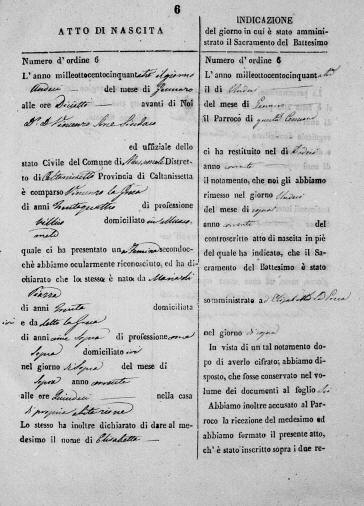 6
ATTO DI NASCITA
Numero d'ordine 6
L'anno millottocentocinquantatre il giorno
Undici — del mese di Gennaro
alle ore Diecisette avanti di Noi
Sindaco
ed uffiziale dello
stato Civile del Comune di Mussomeli Distret-
to di Caltanissetta Provincia di Caltanissetta
è comparso Vincenzo
di anni Trentaquattro di professione
villico domiciliato in Musso
meli
quale ci ha presentato una Femina secondoc-
chè abbiamo ocularmente riconosciuto, ed ha di-
chiarato che lo stesso è nato da
di anni Trenta domiciliata
ivi e da detto
di anni come sopra di professione come
Sopra domiciliato ivi
nel giorno di Sopra del mese di
Sopra anno corrente
alle ore Quindici nella casa
di propria abitazione
Lo stesso ha inoltre dichiarato di dare al me-
desimo il nome di Elisabetta —
INDICAZIONE
del giorno in cui è stato ammini-
strato il Sacramento del Battesimo
Numero d'ordine 6
L'anno millottocentocinquantatre
il Undici
del mese di Gennaro
il Parroco di questa Comune
ci ha restituito nel dì Undici
anno corrente
il notamento, che noi gli abbiamo
rimesso nel giorno Undici
del mese di sopra
anno corrente del
controscritto atto di nascita in piè
del quale ha indicato, che il Sa-
cramento del Battesimo è stato
somministrato a Elisabetta
nel giorno di sopra
In vista di un tal notamento
dopo di averlo cifrato; abbiamo di-
sposto, che fosse conservato nel
volume dei documenti al foglio
Abbiamo inoltre accusato al Par-
roco la ricezione del medesimo ed
abbiamo formato il presente atto,
ch'è stato inscritto sopra i due re-